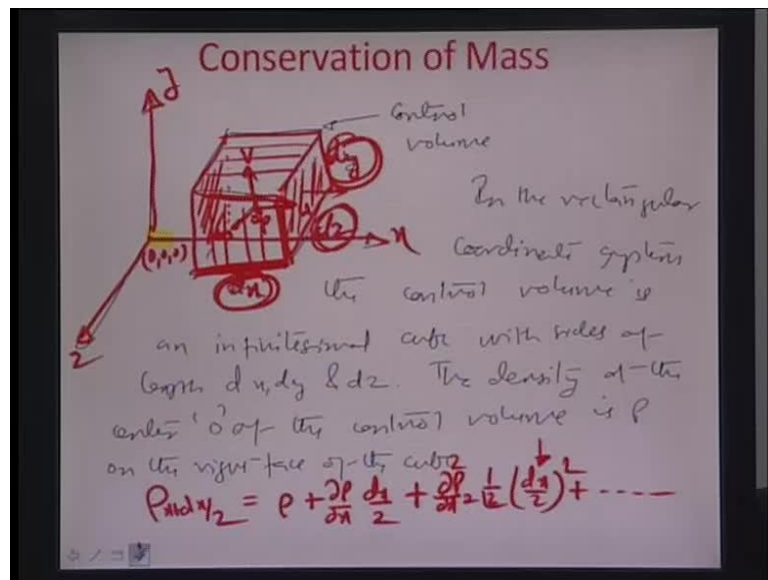 Conservation of Mass
y
control
volume
V
dy
In the rectangular
dz
x
(0,0,0)
coordinate system
dx
the control volume is
z
an infinitesimal cube with sides of
length dx, dy & dz. The density at the
center 'O' of the control volume is ρ
on the right face of the cube
ρx+dx/2 = ρ + ∂ρ/∂x dx/2 + ∂²ρ/∂x² 1/2 (dx/2)² + -----